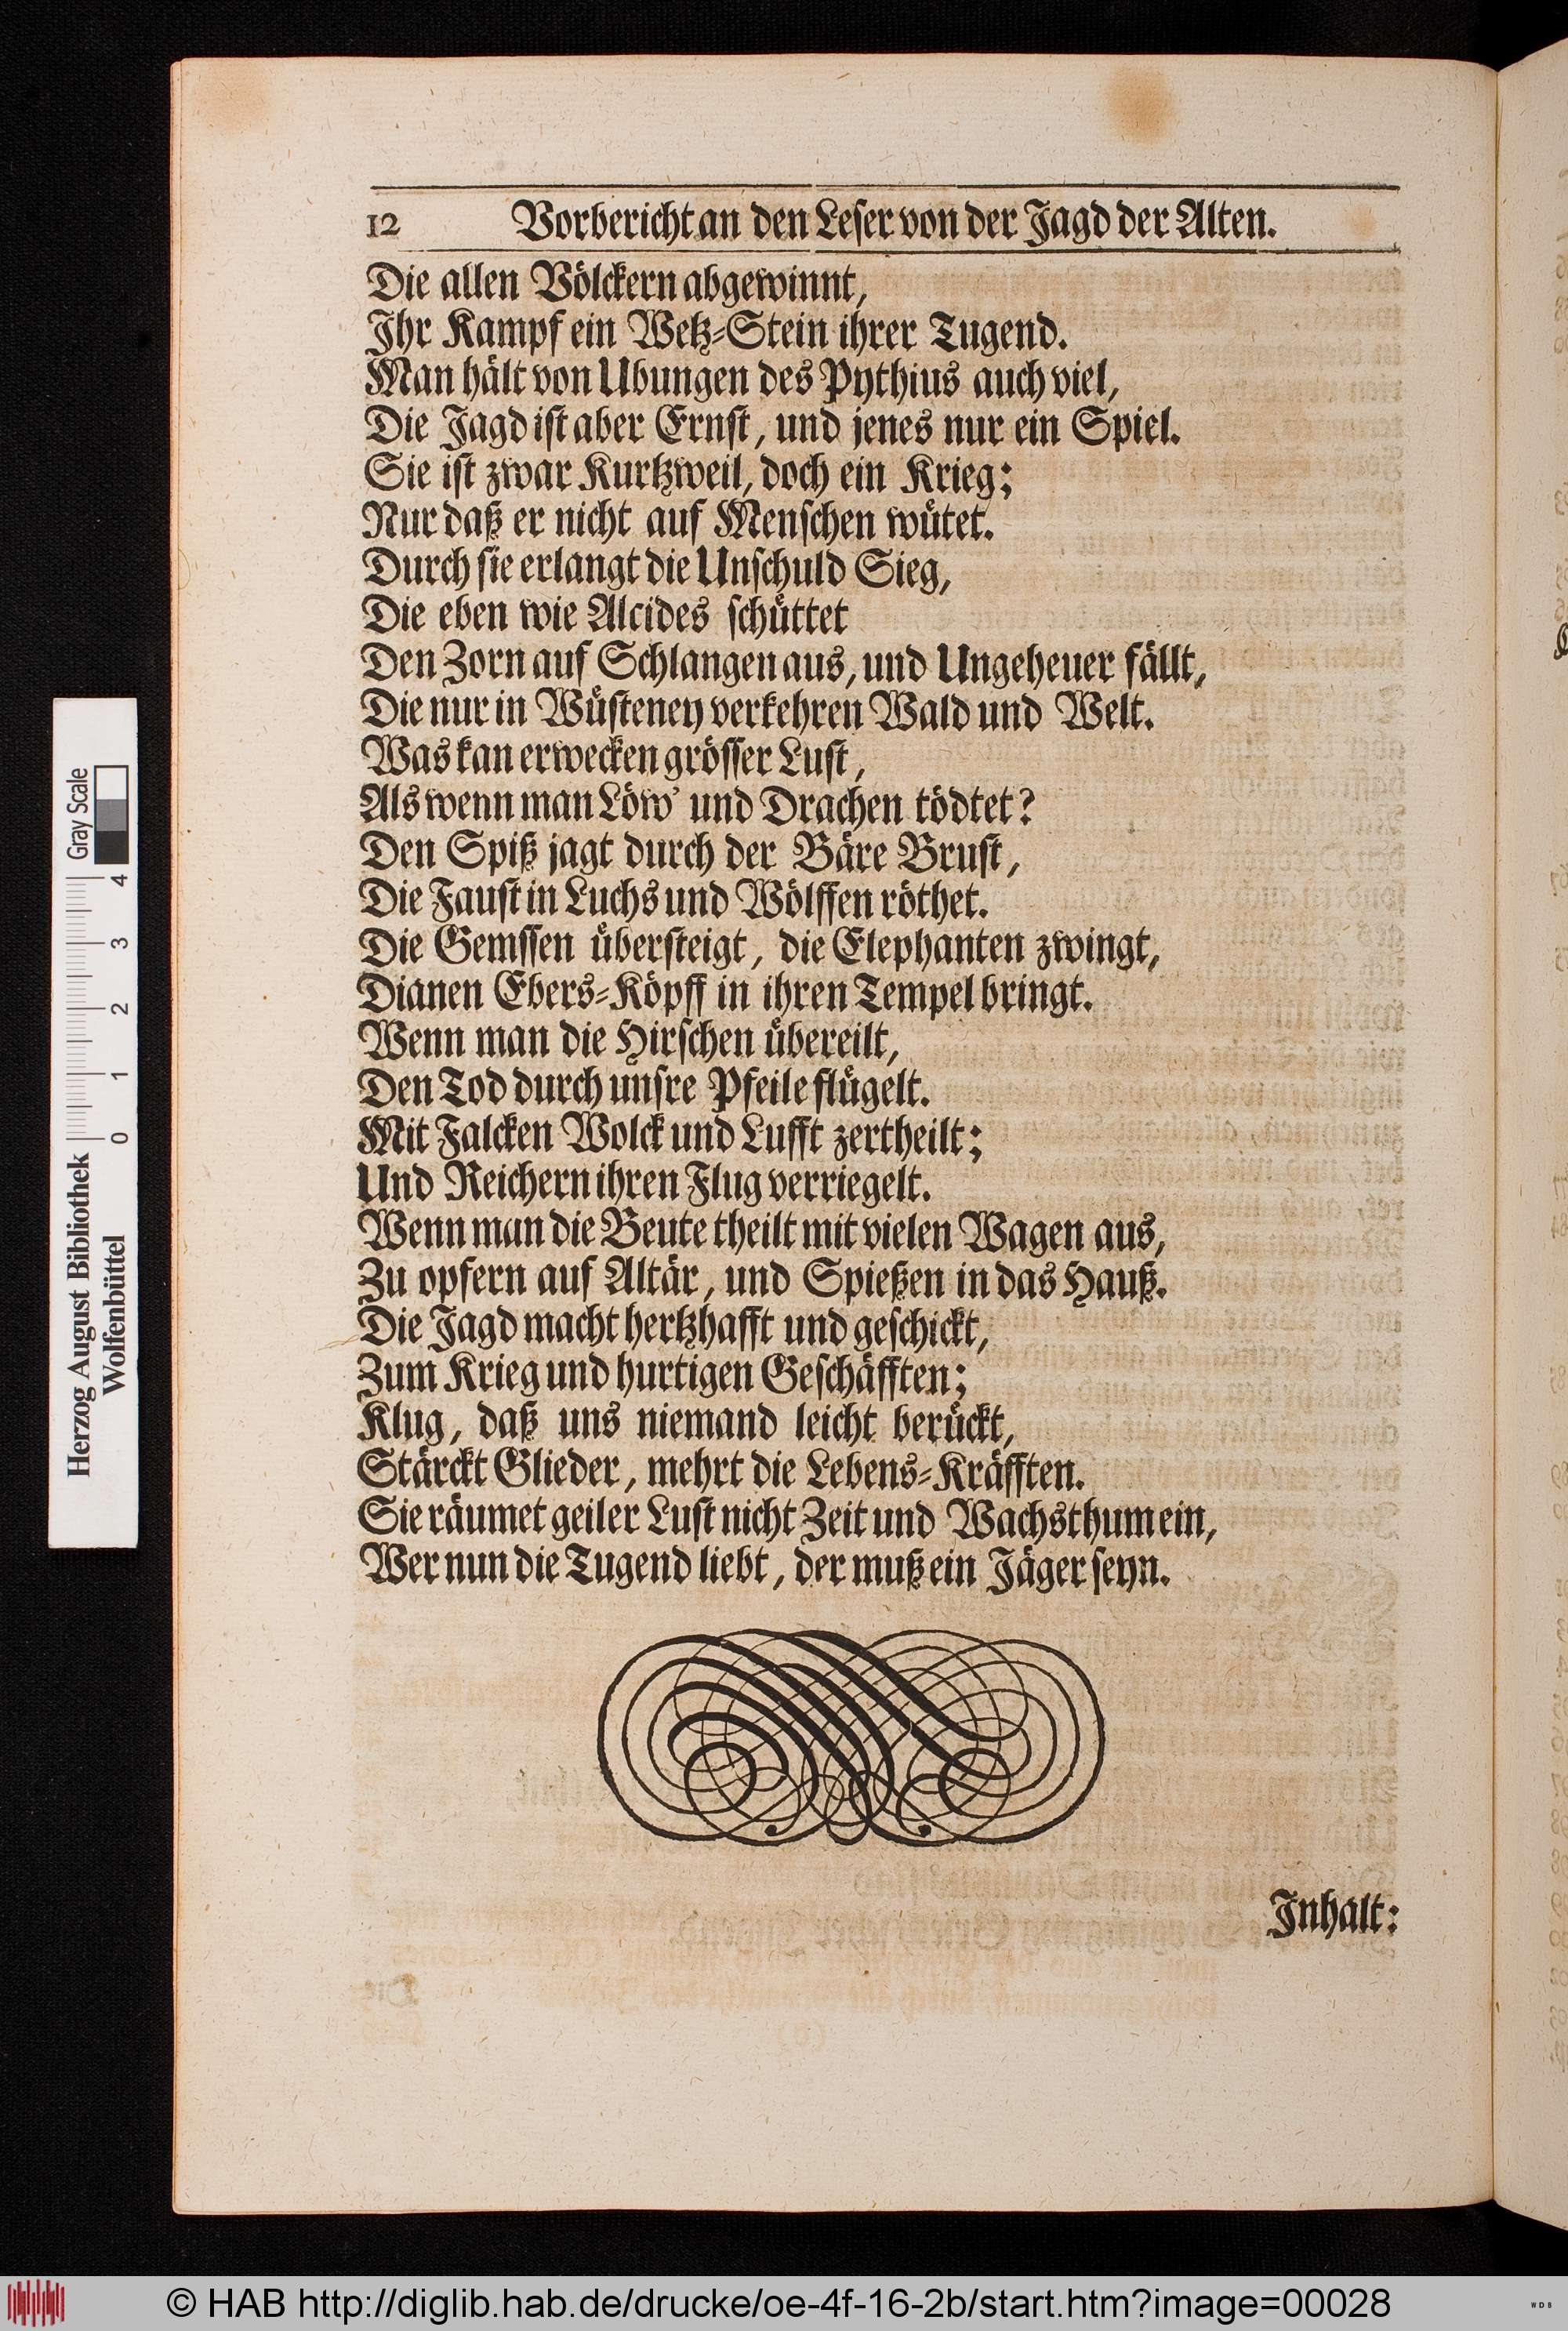 12 Vorbericht an den Leser von der Jagd der Alten.
Die allen Völckern abgewinnt,
Ihr Kampf ein Wetz-Stein ihrer Tugend.
Man hält von Ubungen des Pythius auch viel,
Die Jagd ist aber Ernst, und jenes nur ein Spiel.
Sie ist zwar Kurtzweil, doch ein Krieg;
Nur daß er nicht auf Menschen wütet.
Durch sie erlangt die Unschuld Sieg,
Die eben wie Alcides schüttet
Den Zorn auf Schlangen aus, und Ungeheuer fällt,
Die nur in Wüsteney verkehren Wald und Welt.
Was kan erwecken grösser Lust,
Als wenn man Löw' und Drachen tödtet?
Den Spiß jagt durch der Bäre Brust,
Die Faust in Luchs und Wölffen röthet.
Die Gemssen übersteigt, die Elephanten zwingt,
Dianen Ebers-Köpff in ihren Tempel bringt.
Wenn man die Hirschen übereilt,
Den Tod durch unsre Pfeile flügelt.
Mit Falcken Wolck und Lufft zertheilt;
Und Reichern ihren Flug verriegelt.
Wenn man die Beute theilt mit vielen Wagen aus,
Zu opfern auf Altär, und Spießen in das Hauß.
Die Jagd macht hertzhafft und geschickt,
Zum Krieg und hurtigen Geschäfften;
Klug, daß uns niemand leicht berückt,
Stärckt Glieder, mehrt die Lebens-Kräfften.
Sie räumet geiler Lust nicht Zeit und Wachsthum ein,
Wer nun die Tugend liebt, der muß ein Jäger seyn.
Inhalt:
Herzog August Bibliothek
Wolfenbüttel
0 1 2 3 4
Gray Scale
© HAB http://diglib.hab.de/drucke/oe-4f-16-2b/start.htm?image=00028
WDB